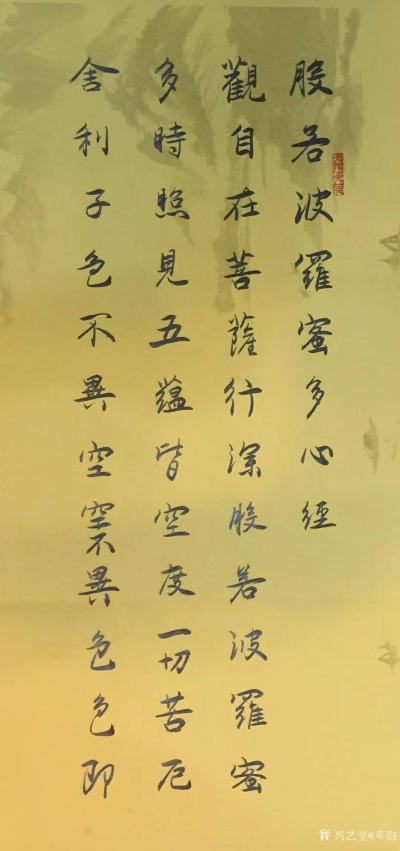 般若波羅蜜多心經
觀自在菩薩行深般若波羅蜜
多時照見五蘊皆空度一切苦厄
舍利子色不異空空不異色色即
兴艺堂@邓澍